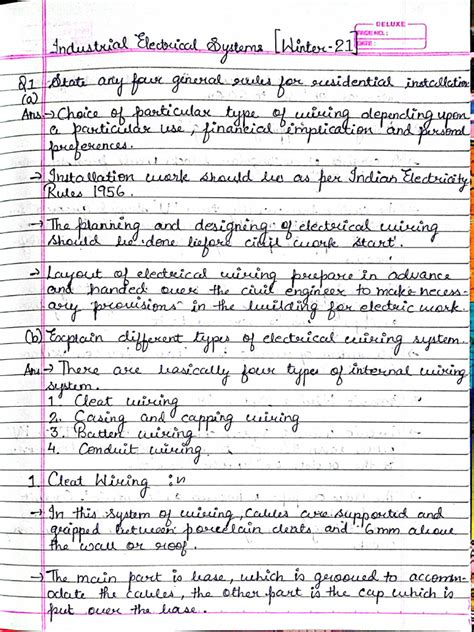 DELUXE
PAGE NO.:
DATE:
Industrial Electrical Systems [Winter-21]
Q1 State any four general rules for residential installation
(a)
Ans→ Choice of particular type of wiring depending upon
a particular use, financial implication and personal
preferences.
→ Installation work should be as per Indian Electricity
Rules 1956.
→ The planning and designing of electrical wiring
should be done before civil work start.
→ Layout of electrical wiring prepare in advance
and handed over the civil engineer to make necess-
ary provisions in the building for electric work.
(b) Explain different types of electrical wiring system.
Ans→ There are basically four types of internal wiring
system.
1. Cleat wiring
2. Casing and capping wiring
3. Batten wiring
4. Conduit wiring.
1. Cleat Wiring :~
→ In this system of wiring, cables are supported and
gripped between porcelain cleats and 6mm above
the wall or roof.
→ The main part is base, which is grooved to accomm-
odate the cables, the other part is the cap which is
put over the base.